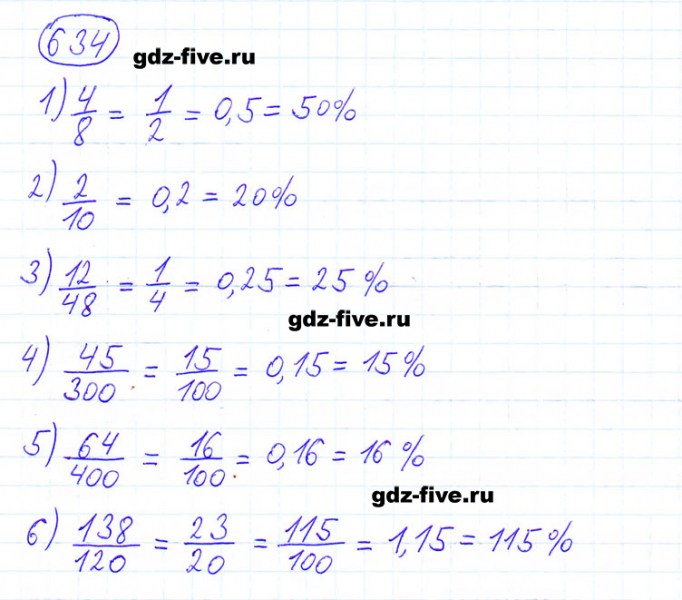 634
gdz-five.ru
1) 4/8 = 1/2 = 0,5 = 50%
2) 2/10 = 0,2 = 20%
3) 12/48 = 1/4 = 0,25 = 25%
gdz-five.ru
4) 45/300 = 15/100 = 0,15 = 15%
5) 64/400 = 16/100 = 0,16 = 16%
gdz-five.ru
6) 138/120 = 23/20 = 115/100 = 1,15 = 115%